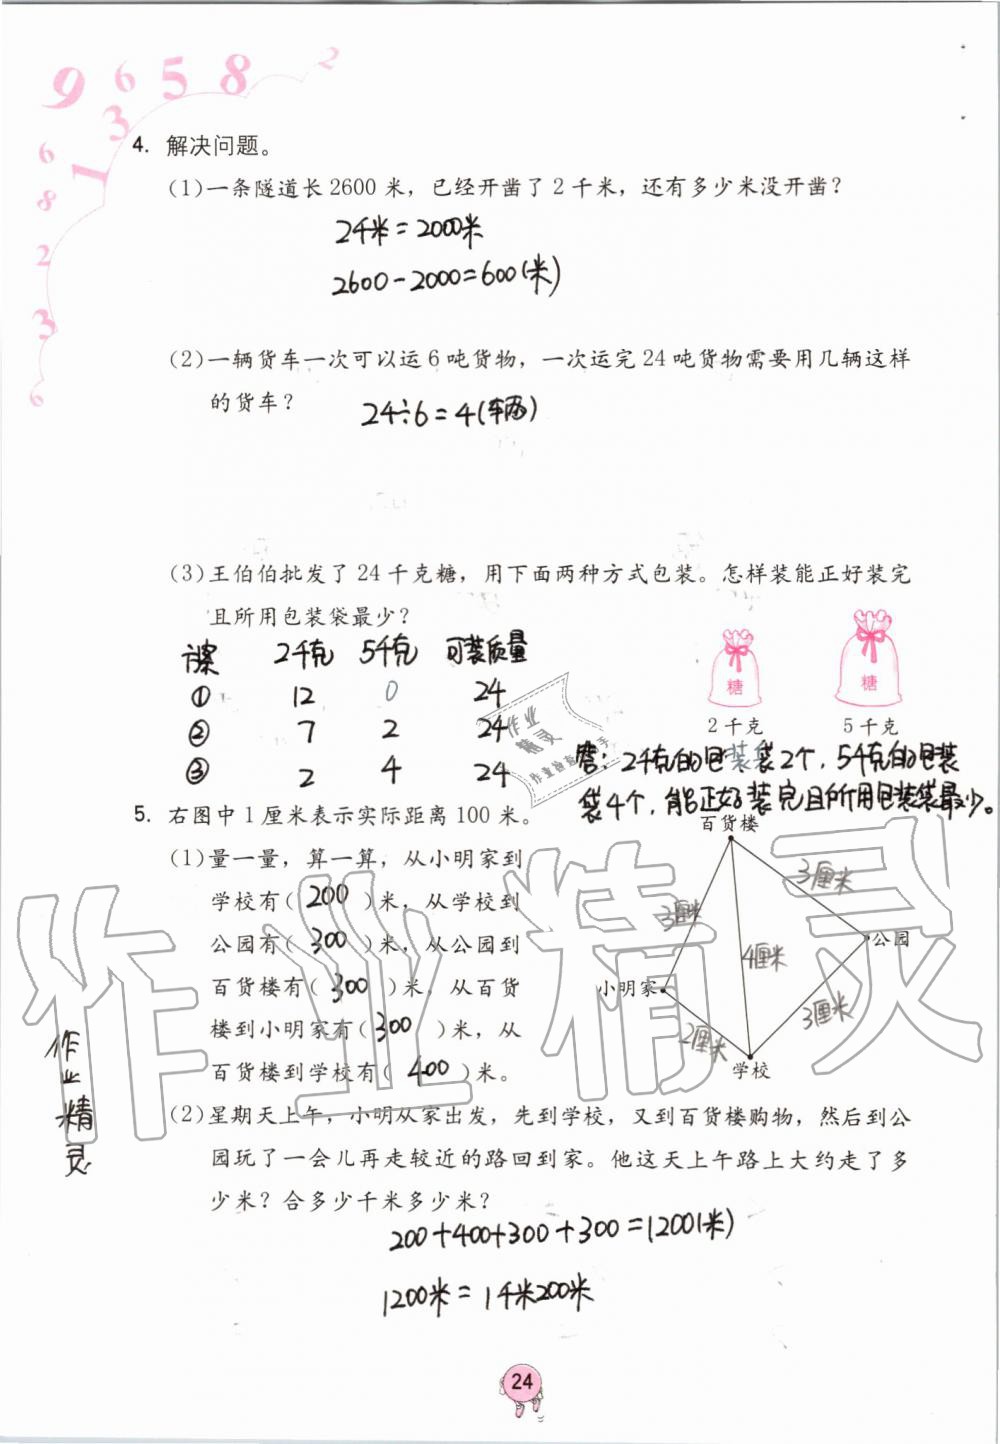 9 6 5 8 2
3
1
6
8
2
3
6
4. 解决问题。
(1)一条隧道长2600米，已经开凿了2千米，还有多少米没开凿？
2千米＝2000米
2600－2000＝600(米)
(2)一辆货车一次可以运6吨货物，一次运完24吨货物需要用几辆这样
的货车？
24÷6＝4(辆)
(3)王伯伯批发了24千克糖，用下面两种方式包装。怎样装能正好装完
且所用包装袋最少？
方案 2千克 5千克 可装质量
① 12 0 24
② 7 2 24
③ 2 4 24
糖 糖
2千克 5千克
答：2千克的包装袋2个，5千克的包装
袋4个，能正好装完且所用包装袋最少。
5. 右图中1厘米表示实际距离100米。
(1)量一量，算一算，从小明家到
学校有( 200 )米，从学校到
公园有( 300 )米，从公园到
百货楼有( 300 )米，从百货
楼到小明家有( 300 )米，从
百货楼到学校有( 400 )米。
百货楼
3厘米
3厘米
公园
4厘米
小明家
3厘米
2厘米
学校
(2)星期天上午，小明从家出发，先到学校，又到百货楼购物，然后到公
园玩了一会儿再走较近的路回到家。他这天上午路上大约走了多
少米？合多少千米多少米？
200＋400＋300＋300＝1200(米)
1200米＝1千米200米
作业精灵
作业精灵
作业
精灵
24